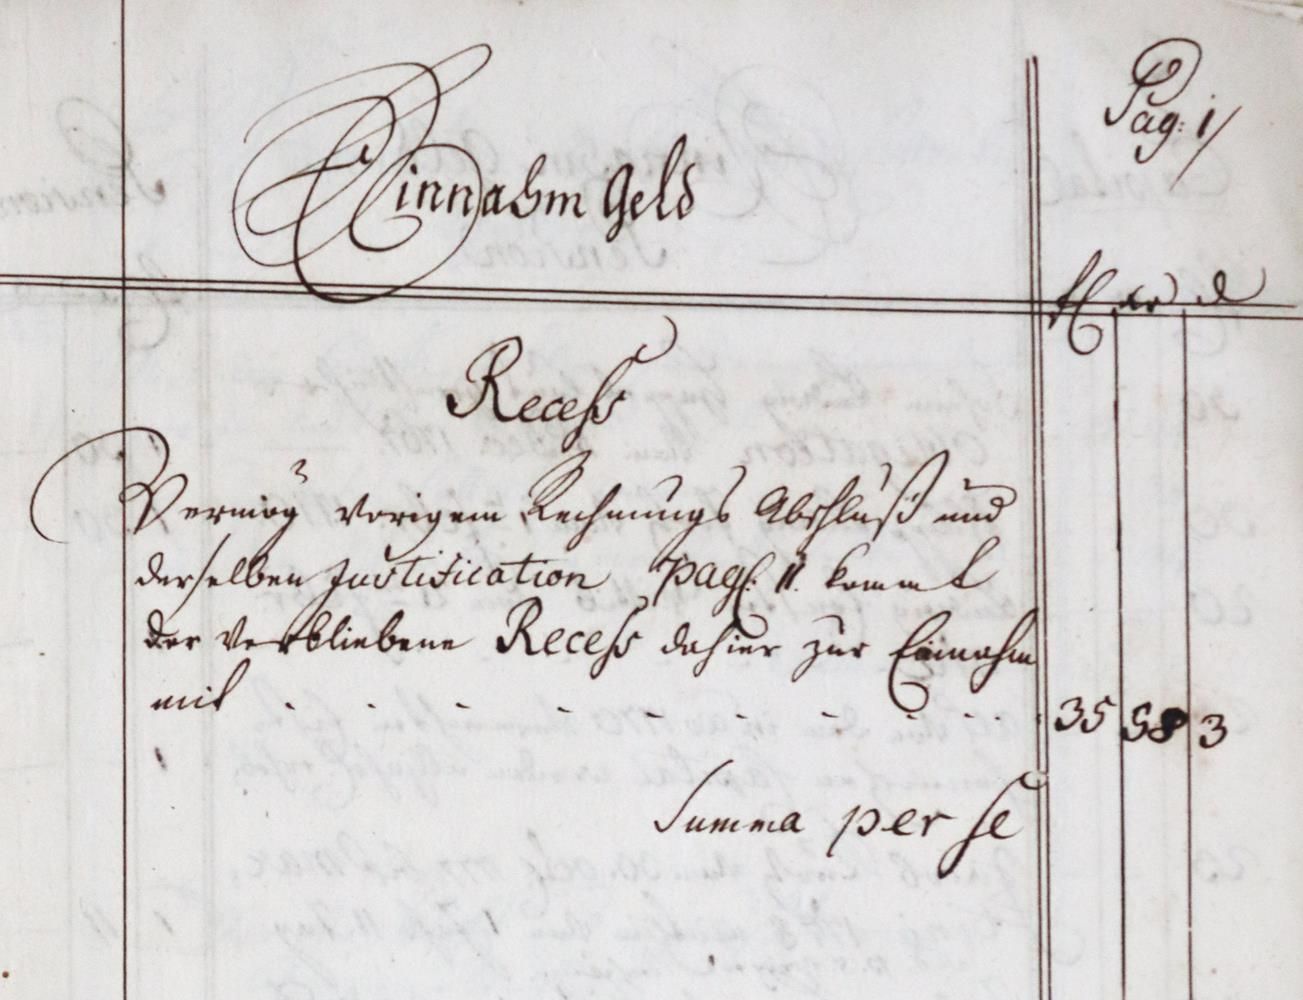 Pag: 1/
Einnahm Geld
fl xr d
Recess
Vermög vorigem Rechnungs Abschluß und
derselben Justification pag: 11. kommt
der verbliebene Recess dahier zur Einnahm
mit . . . . . . . . . 35 58 3
Summa per se